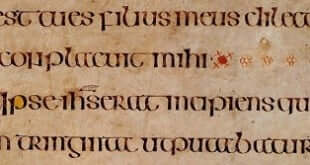 est tu es filius meus dilec
conplacuit mihi
ipse ihs erat incipiens qu
tringinta ut putabatur